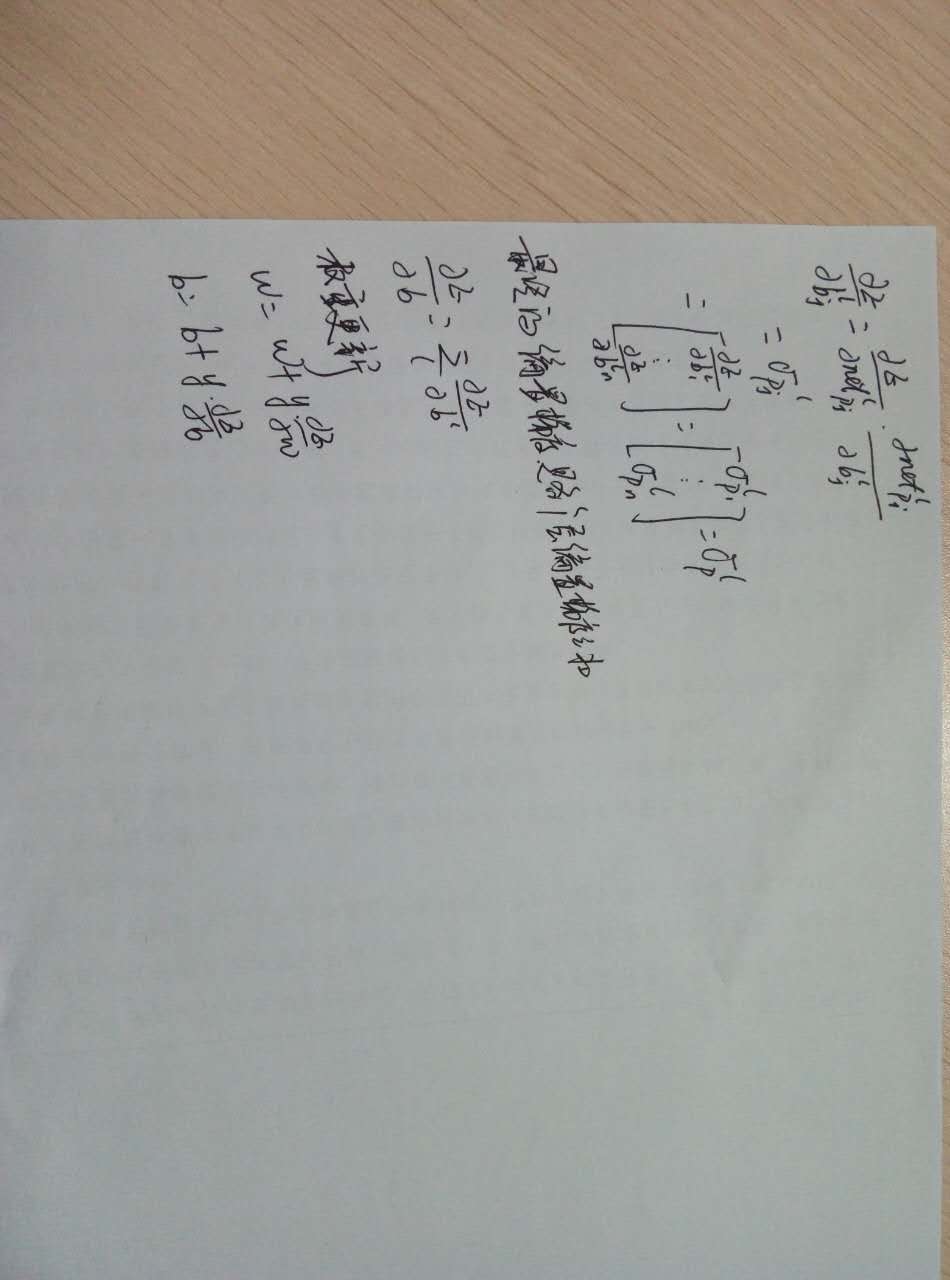 ∂E/∂b_j^l = ∂E/∂net_{pj}^l · ∂net_{pj}^l/∂b_j^l
= σ_{pj}^l
= [∂E/∂b_1^l ⋮ ∂E/∂b_n^l] = [σ_{p1}^l ⋮ σ_{pn}^l] = σ_p^l
最终的偏置梯度是各个层偏置梯度之和
∂E/∂b = Σ_l ∂E/∂b^l
权重更新
w = w + y ∂E/∂w
b = b + y · ∂E/∂b